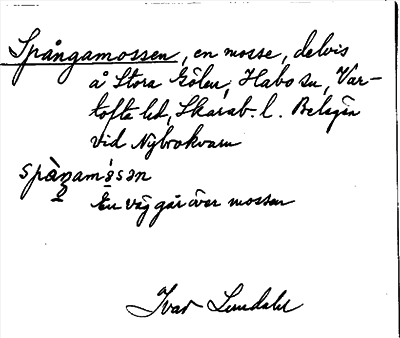 Spångamossen, en mosse, delvis
å Stora Gölen, Habo sn, Var-
tofta hd, Skarab. l. Belägen
vid Nybrokvarn
spåŋam​åsən
En väg går över mossen
Ivar Lundahl